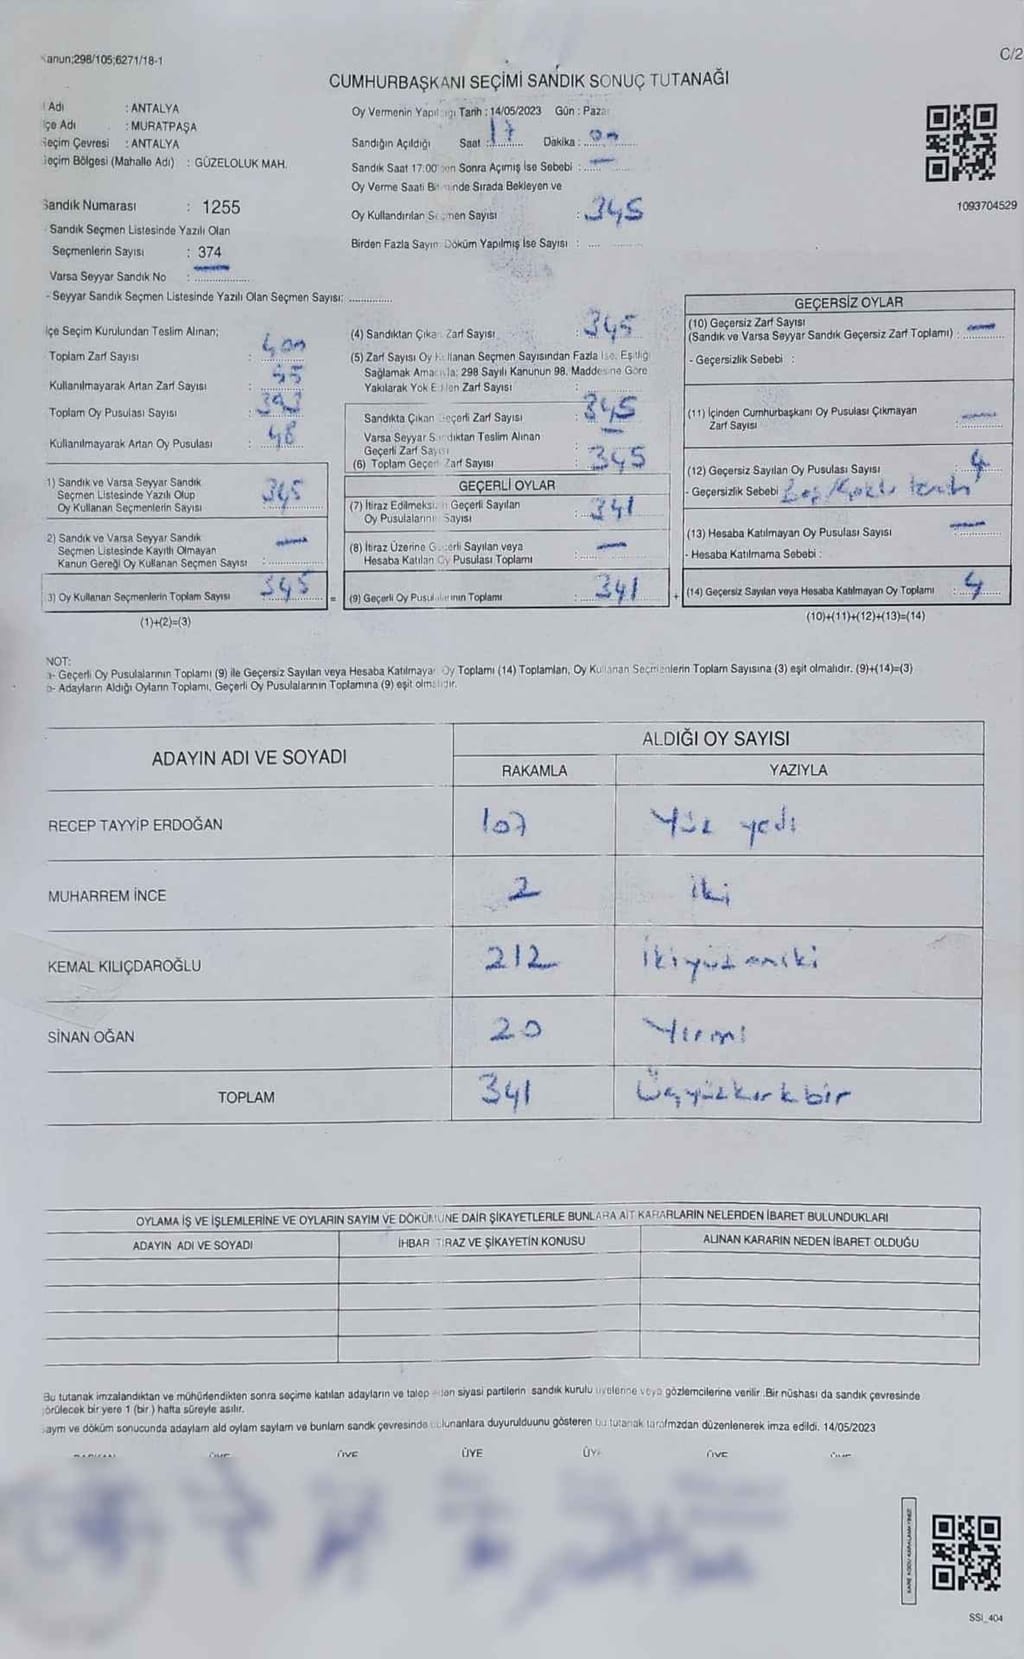 Kanun;298/105;6271/18-1
C/2
CUMHURBAŞKANI SEÇİMİ SANDIK SONUÇ TUTANAĞI
İl Adı : ANTALYA
İlçe Adı : MURATPAŞA
Seçim Çevresi : ANTALYA
Seçim Bölgesi (Mahalle Adı) : GÜZELOLUK MAH.
Sandık Numarası : 1255
Sandık Seçmen Listesinde Yazılı Olan
Seçmenlerin Sayısı : 374
Varsa Seyyar Sandık No :
- Seyyar Sandık Seçmen Listesinde Yazılı Olan Seçmen Sayısı:
Oy Vermenin Yapıldığı Tarih : 14/05/2023 Gün : Pazar
Sandığın Açıldığı Saat : 17 Dakika : 00
Sandık Saat 17:00'den Sonra Açımış İse Sebebi :
Oy Verme Saati Bitiminde Sırada Bekleyen ve
Oy Kullandırılan Seçmen Sayısı : 345
Birden Fazla Sayım Döküm Yapılmış İse Sayısı :
1093704529
İlçe Seçim Kurulundan Teslim Alınan;
Toplam Zarf Sayısı : 400
Kullanılmayarak Artan Zarf Sayısı :
Toplam Oy Pusulası Sayısı : 393
Kullanılmayarak Artan Oy Pusulası : 48
1) Sandık ve Varsa Seyyar Sandık
Seçmen Listesinde Yazılı Olup
Oy Kullanan Seçmenlerin Sayısı 345
2) Sandık ve Varsa Seyyar Sandık
Seçmen Listesinde Kayıtlı Olmayan
Kanun Gereği Oy Kullanan Seçmen Sayısı :
3) Oy Kullanan Seçmenlerin Toplam Sayısı 345 =
(1)+(2)=(3)
(4) Sandıktan Çıkan Zarf Sayısı : 345
(5) Zarf Sayısı Oy Kullanan Seçmen Sayısından Fazla İse, Eşitliği
Sağlamak Amacıyla; 298 Sayılı Kanunun 98. Maddesine Göre
Yakılarak Yok Edilen Zarf Sayısı :
Sandıkta Çıkan Geçerli Zarf Sayısı : 345
Varsa Seyyar Sandıktan Teslim Alınan
Geçerli Zarf Sayısı :
(6) Toplam Geçerli Zarf Sayısı : 345
GEÇERLİ OYLAR
(7) İtiraz Edilmeksizin Geçerli Sayılan
Oy Pusulalarının Sayısı : 341
(8) İtiraz Üzerine Geçerli Sayılan veya
Hesaba Katılan Oy Pusulası Toplamı :
(9) Geçerli Oy Pusulalarının Toplamı : 341 +
GEÇERSİZ OYLAR
(10) Geçersiz Zarf Sayısı
(Sandık ve Varsa Seyyar Sandık Geçersiz Zarf Toplamı) :
- Geçersizlik Sebebi :
(11) İçinden Cumhurbaşkanı Oy Pusulası Çıkmayan
Zarf Sayısı :
(12) Geçersiz Sayılan Oy Pusulası Sayısı : 4
- Geçersizlik Sebebi
(13) Hesaba Katılmayan Oy Pusulası Sayısı
- Hesaba Katılmama Sebebi :
(14) Geçersiz Sayılan veya Hesaba Katılmayan Oy Toplamı : 4
(10)+(11)+(12)+(13)=(14)
NOT:
a- Geçerli Oy Pusulalarının Toplamı (9) ile Geçersiz Sayılan veya Hesaba Katılmayan Oy Toplamı (14) Toplamları, Oy Kullanan Seçmenlerin Toplam Sayısına (3) eşit olmalıdır. (9)+(14)=(3)
b- Adayların Aldığı Oyların Toplamı, Geçerli Oy Pusulalarının Toplamına (9) eşit olmalıdır.
ADAYIN ADI VE SOYADI
ALDIĞI OY SAYISI
RAKAMLA YAZIYLA
RECEP TAYYİP ERDOĞAN 107 Yüz yedi
MUHARREM İNCE 2 iki
KEMAL KILIÇDAROĞLU 212 İkiyüz oniki
SİNAN OĞAN 20 Yirmi
TOPLAM 341 Üçyüzkırkbir
OYLAMA İŞ VE İŞLEMLERİNE VE OYLARIN SAYIM VE DÖKÜMÜNE DAİR ŞİKAYETLERLE BUNLARA AİT KARARLARIN NELERDEN İBARET BULUNDUKLARI
ADAYIN ADI VE SOYADI İHBAR İTİRAZ VE ŞİKAYETİN KONUSU ALINAN KARARIN NEDEN İBARET OLDUĞU
Bu tutanak imzalandıktan ve mühürlendikten sonra seçime katılan adayların ve talep eden siyasi partilerin sandık kurulu üyelerine veya gözlemcilerine verilir .Bir nüshası da sandık çevresinde
görülecek bir yere 1 (bir ) hafta süreyle asılır.
Sayım ve döküm sonucunda adaylam ald oylam saylam ve bunlam sandk çevresinde bulunanlara duyurulduunu gösteren bu tutanak tarafmzdan düzenlenerek imza edildi. 14/05/2023
ÜYE ÜYE ÜYE ÜYE
SSİ_404